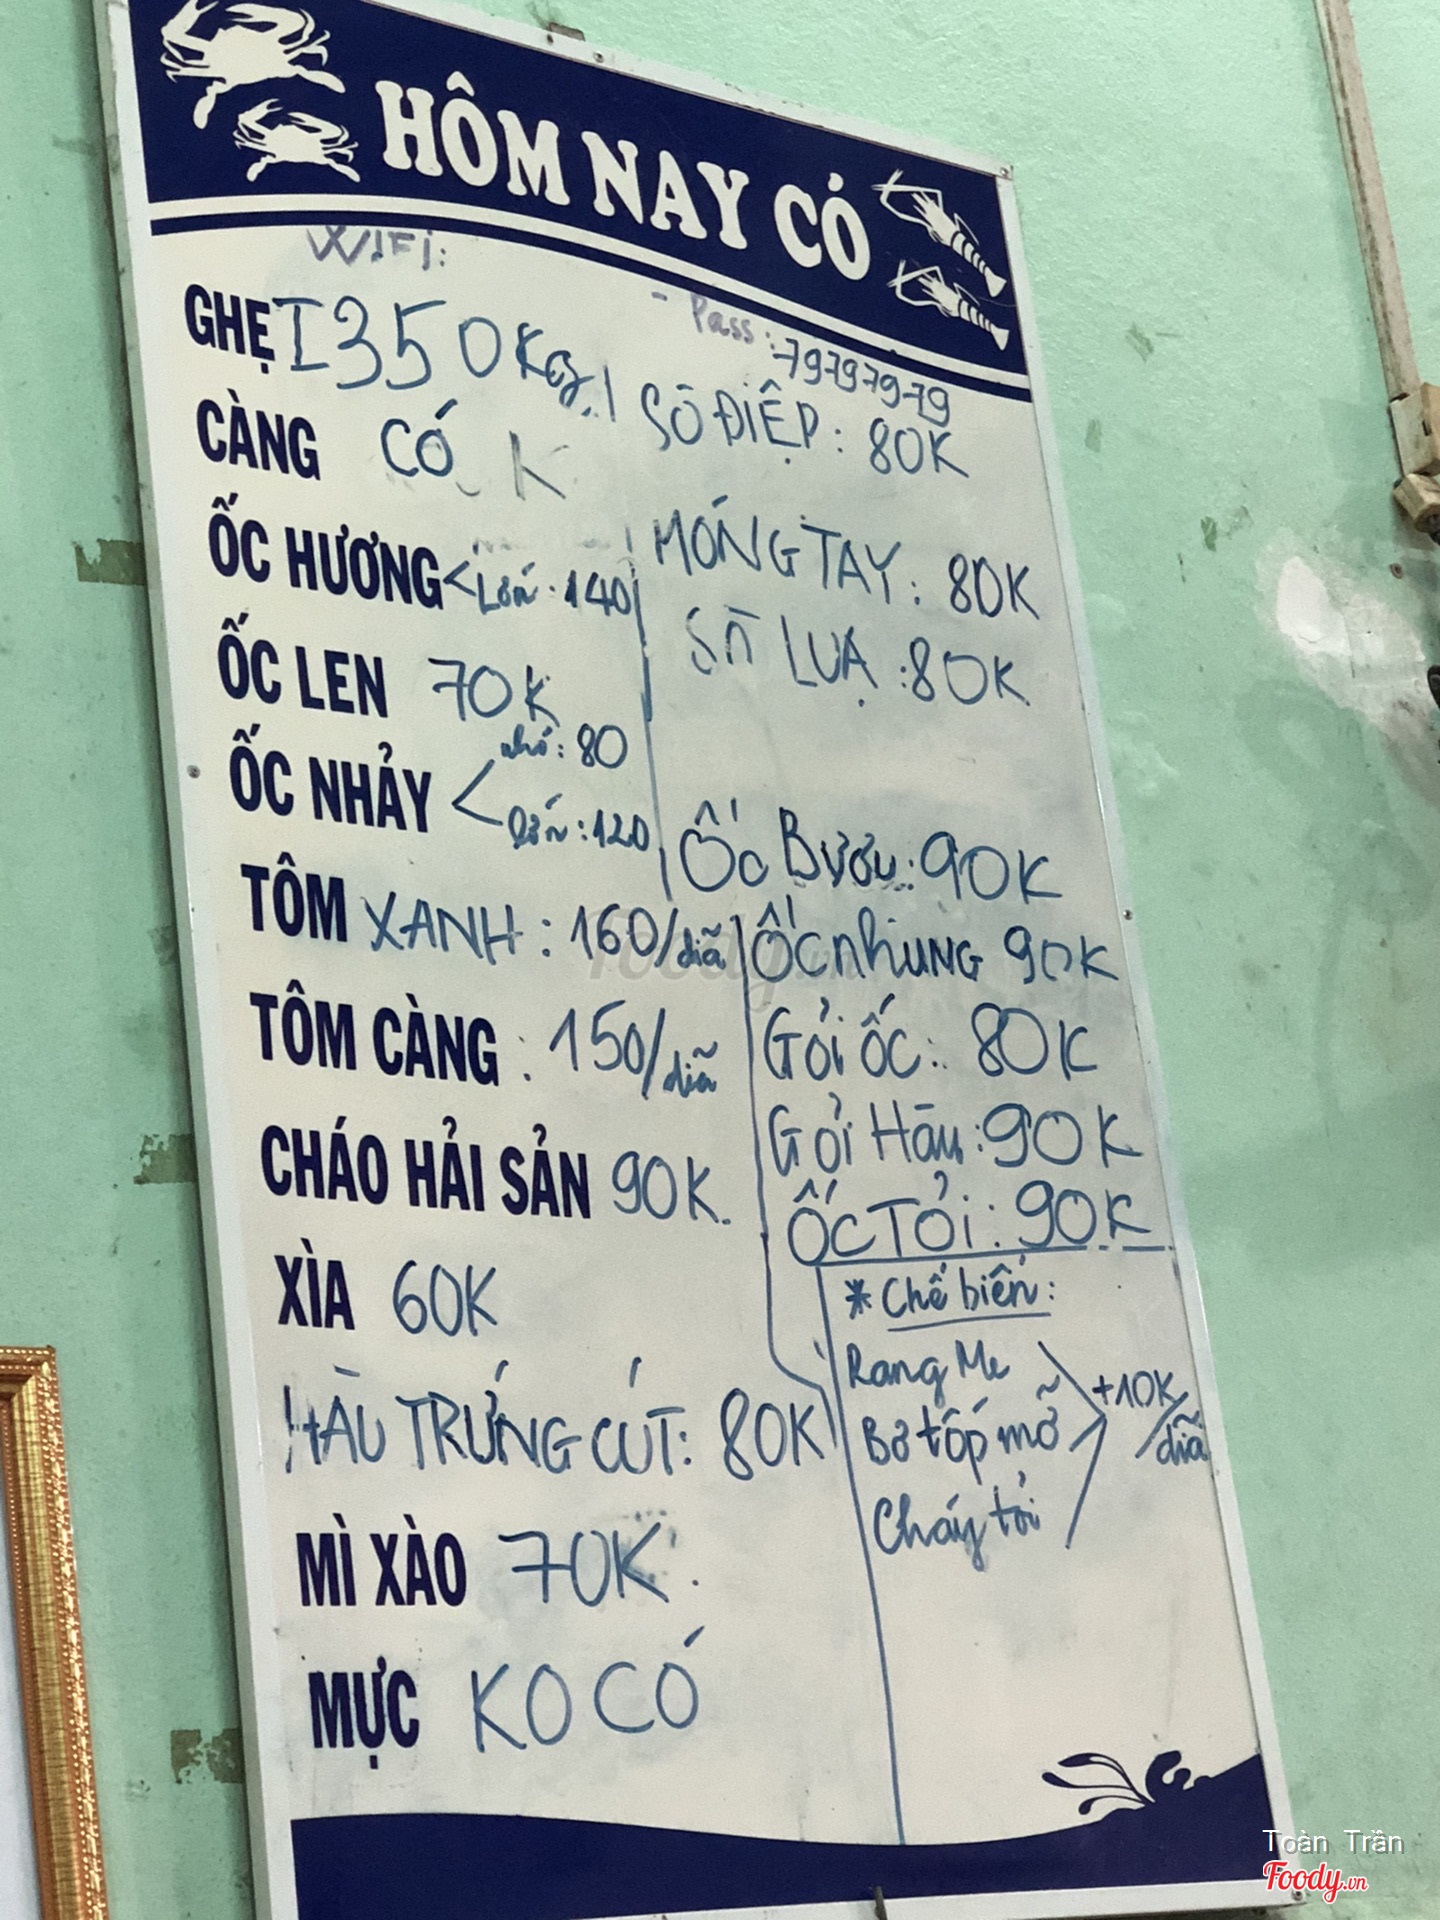 HÔM NAY CÓ
WIFI:
- Pass: 79797979
GHẸ I 350Kg
CÀNG CÓ K
ỐC HƯƠNG < Lớn: 140
ỐC LEN 70K
ỐC NHẢY < nhỏ: 80
lớn: 120
TÔM XANH: 160/dĩa
TÔM CÀNG: 150/dĩa
CHÁO HẢI SẢN 90K.
XÌA 60K
HÀU TRỨNG CÚT: 80K
MÌ XÀO 70K.
MỰC KO CÓ
SÒ ĐIỆP: 80K
MÓNG TAY: 80K
SÒ LỤA: 80K
Ốc Bươu: 90K
Ốc nhung 90K
Gỏi ốc: 80K
Gỏi Hàu: 90K
ỐC TỎi: 90K
* Chế biến:
Rang Me
Bơ tốp mỡ
Cháy tỏi
+10K/dĩa
Toàn Trần
Foody.vn